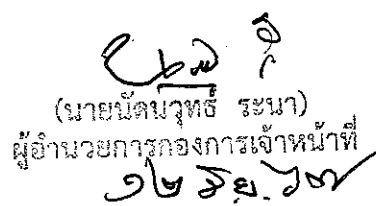 (นายนัดนวุทธ์ ระนา)
ผู้อำนวยการกองการเจ้าหน้าที่
๑๒ มิ.ย. ๖๗